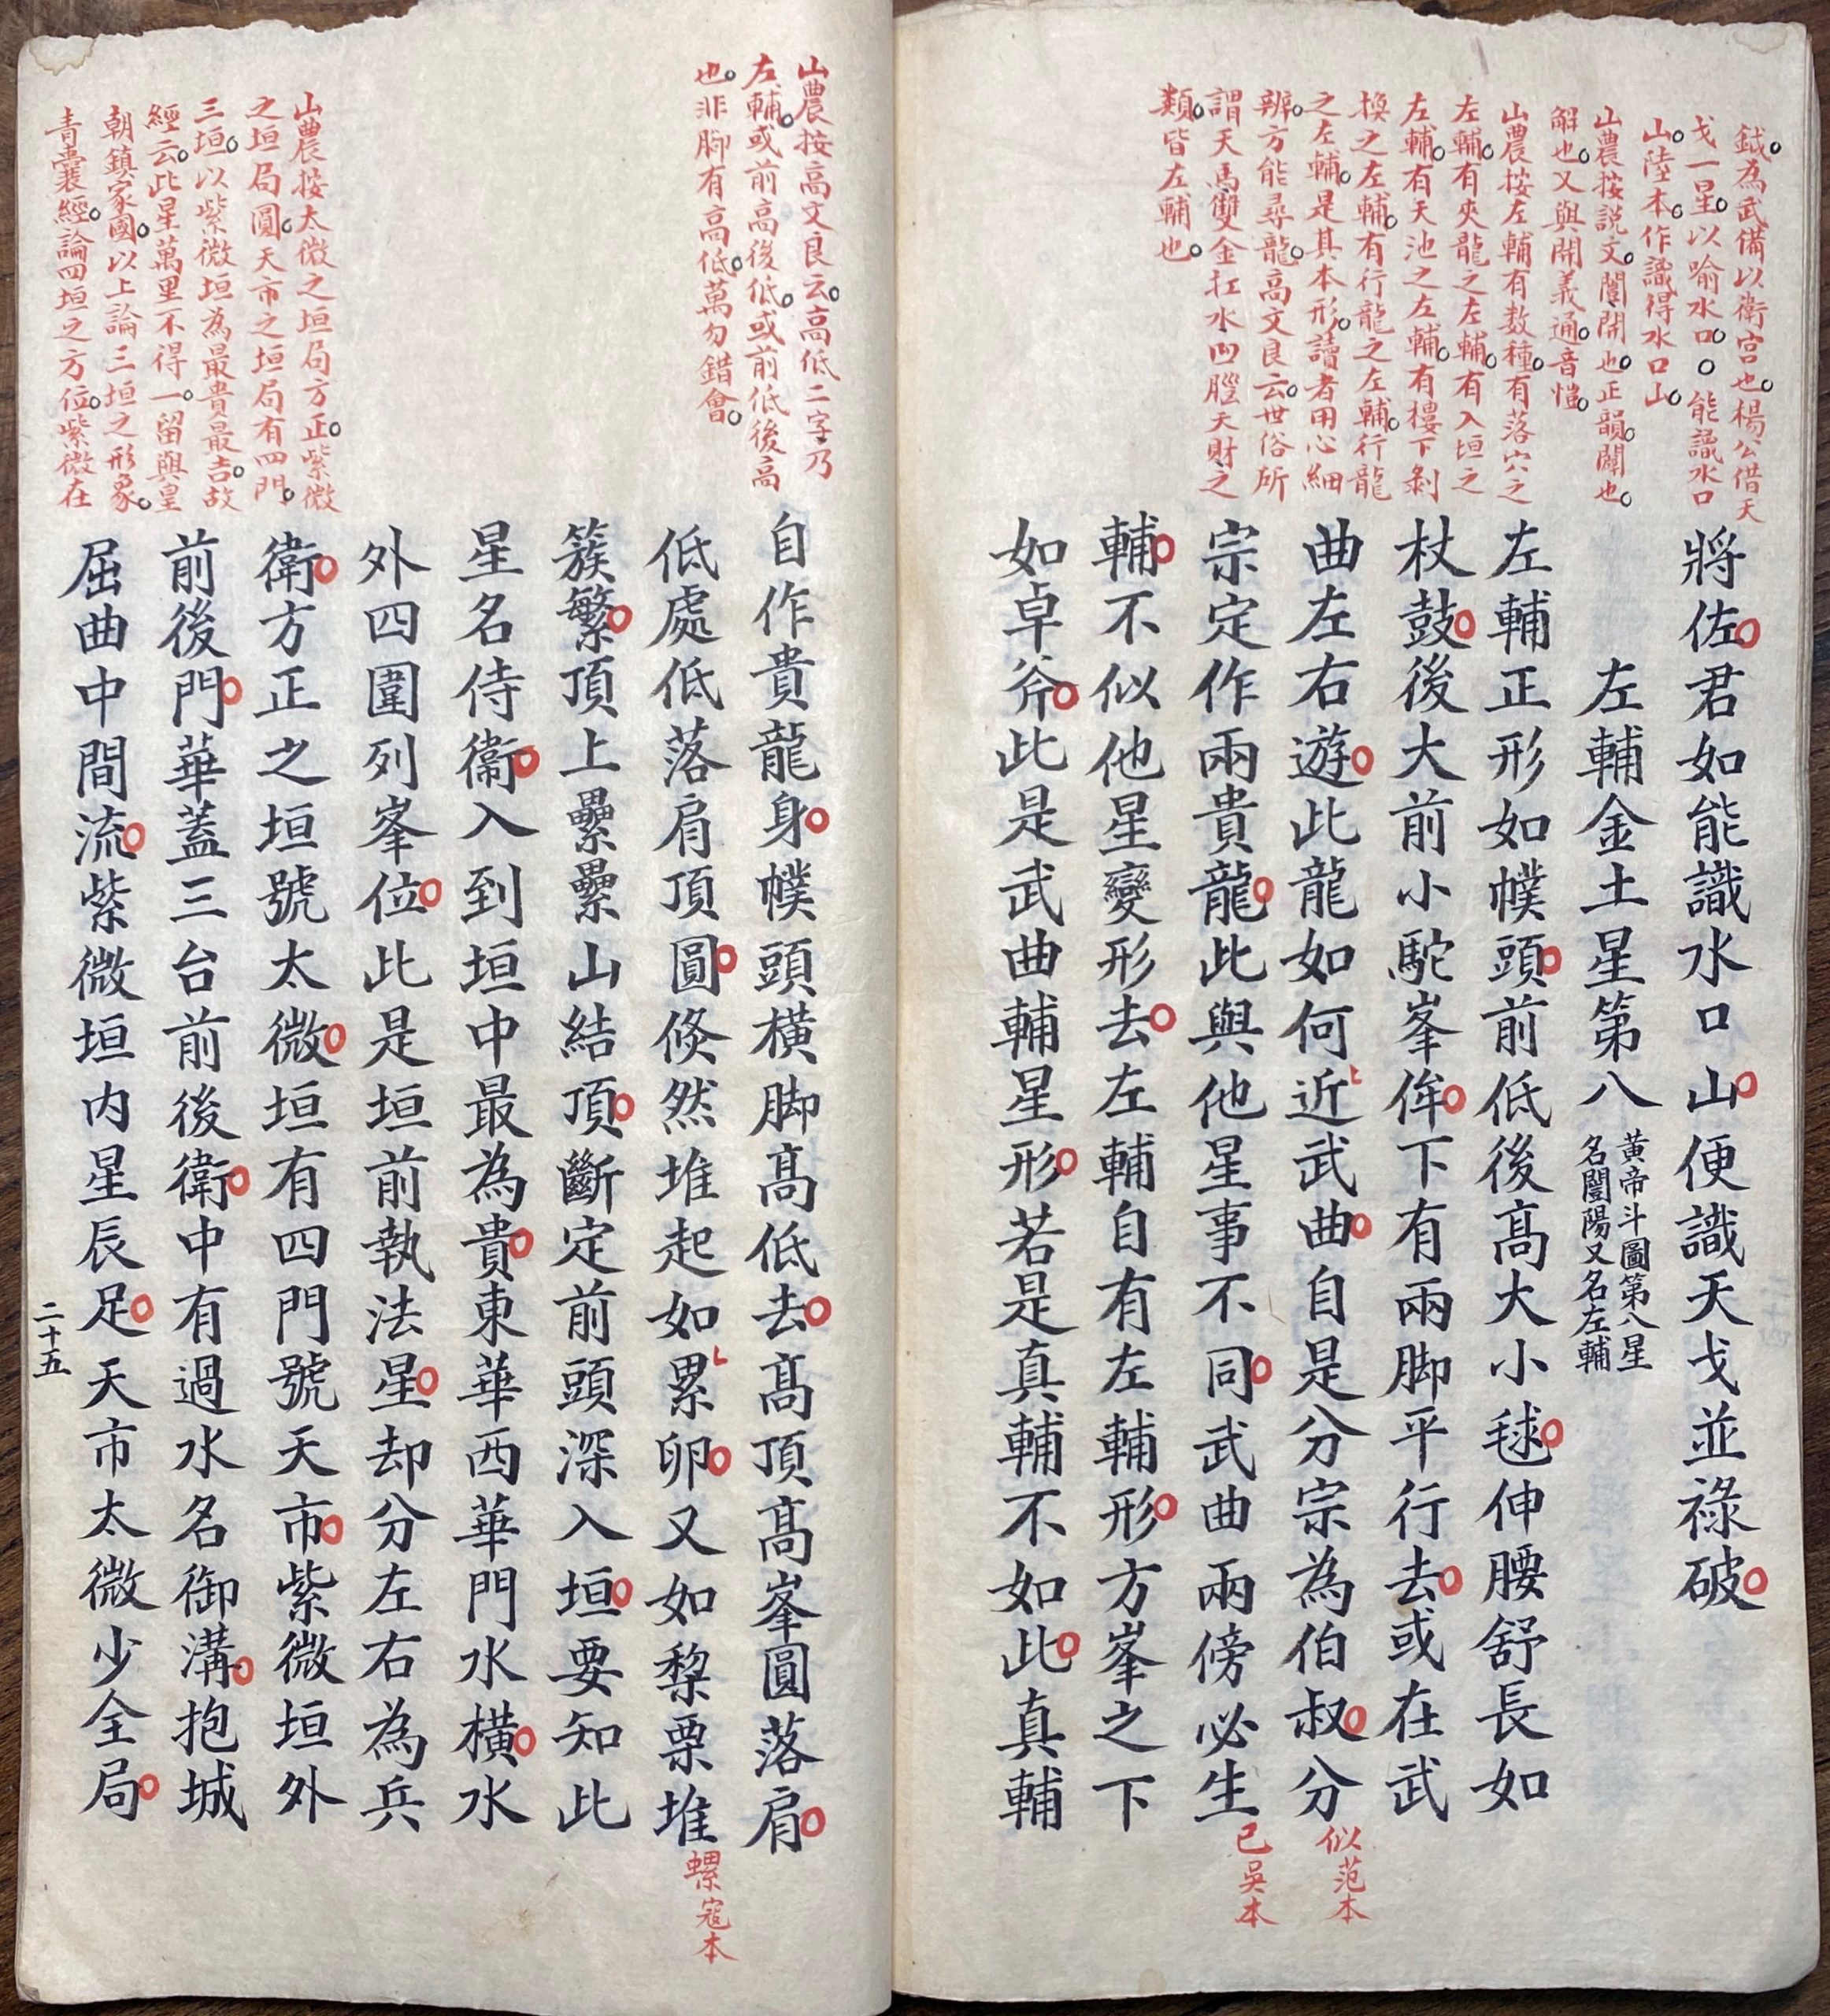 鉞為武備以衛宮也楊公借天
戈一星以喻水口○能識水口
山陸本作識得水口山
山農按說文闓開也正韻闡也
解也又與開義通音愷
山農按左輔有数種有落穴之
左輔有夾龍之左輔有入垣之
左輔有天池之左輔有樓下剝
換之左輔有行龍之左輔行龍
之左輔是其本形讀者用心細
辨方能尋龍高文良云世俗所
謂天馬雙金扛水凹腦天財之
類皆左輔也
將佐君如能識水口山便識天戈並祿破
左輔金土星第八
黃帝斗圖第八星
名闓陽又名左輔
左輔正形如幞頭前低後高大小毬伸腰舒長如
杖鼓後大前小駝峯侔下有兩脚平行去或在武
曲左右遊此龍如何近武曲自是分宗為伯叔分
似范本
宗定作兩貴龍此與他星事不同武曲兩傍必生
已吳本
輔不似他星變形去左輔自有左輔形方峯之下
如卓斧此是武曲輔星形若是真輔不如此真輔
山農按高文良云高低二字乃
左輔或前高後低或前低後高
也非脚有高低萬勿錯會
山農按太微之垣局方正紫微
之垣局圓天市之垣局有四門
三垣以紫微垣為最貴最吉故
經云此星萬里不得一留與皇
朝鎮家國以上論三垣之形象
青囊經論四垣之方位紫微在
自作貴龍身幞頭橫脚高低去高頂高峯圓落肩
低處低落肩頂圓倐然堆起如累卵又如梨栗堆
螺寇本
簇繁頂上纍纍山結頂斷定前頭深入垣要知此
星名侍衛入到垣中最為貴東華西華門水橫水
外四圍列峯位此是垣前執法星却分左右為兵
衛方正之垣號太微垣有四門號天市紫微垣外
前後門華蓋三台前後衛中有過水名御溝抱城
屈曲中間流紫微垣内星辰足天市太微少全局
二十五